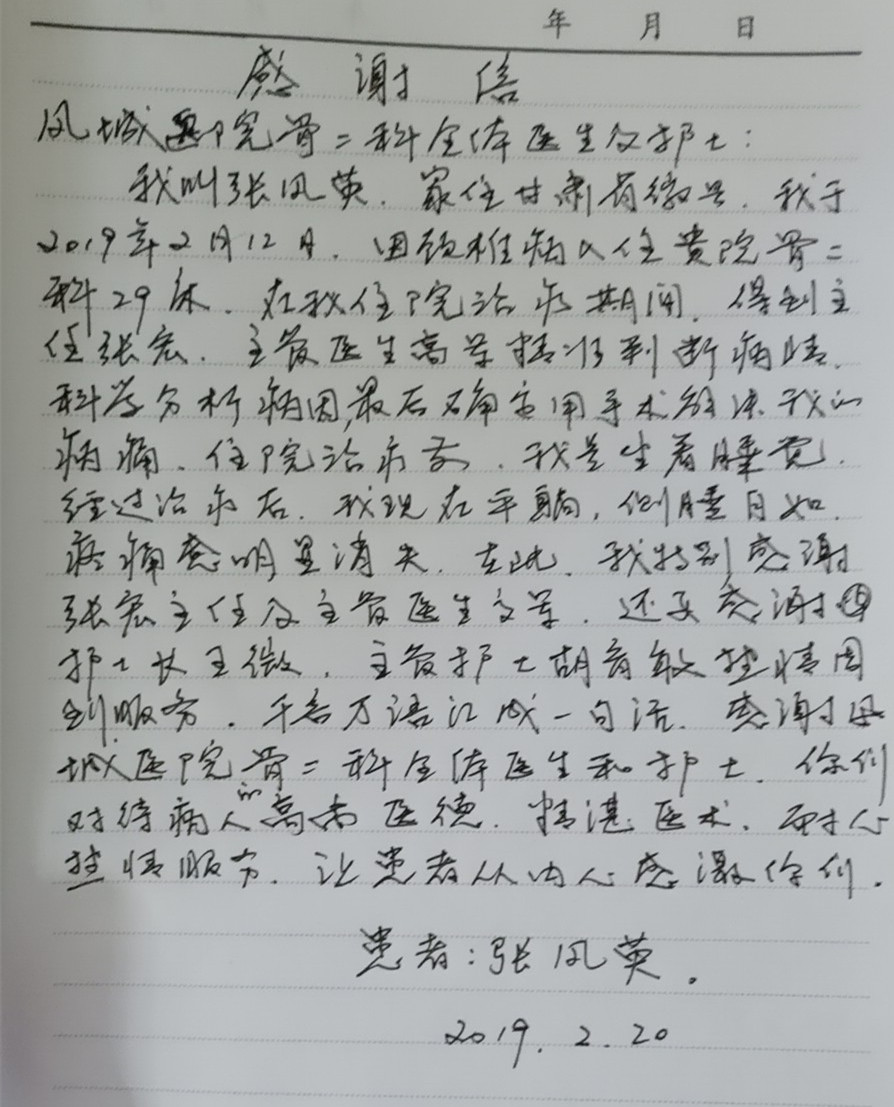 年 月 日
感谢信
凤城医院骨二科全体医生及护士:
我叫张凤英.家住甘肃省徽县.我于
2019年2月12日.因颈椎病入住贵院骨二
科29床.在我住院治疗期间.得到主
任张宏.主管医生高等精准判断病情.
科学分析病因,最后确定用手术解决我的
病痛.住院治疗前.我是坐着睡觉.
经过治疗后.我现在平躺,侧睡自如.
疼痛感明显消失.在此.我特别感谢
张宏主任及主管医生高等.还要感谢
护士长王微.主管护士胡育敏热情周
到服务.千言万语汇成一句话.感谢凤
城医院骨二科全体医生和护士.你们
对待病人的高尚医德.精湛医术.耐心
热情服务.让患者从内心感激你们.
患者:张凤英.
2019.2.20